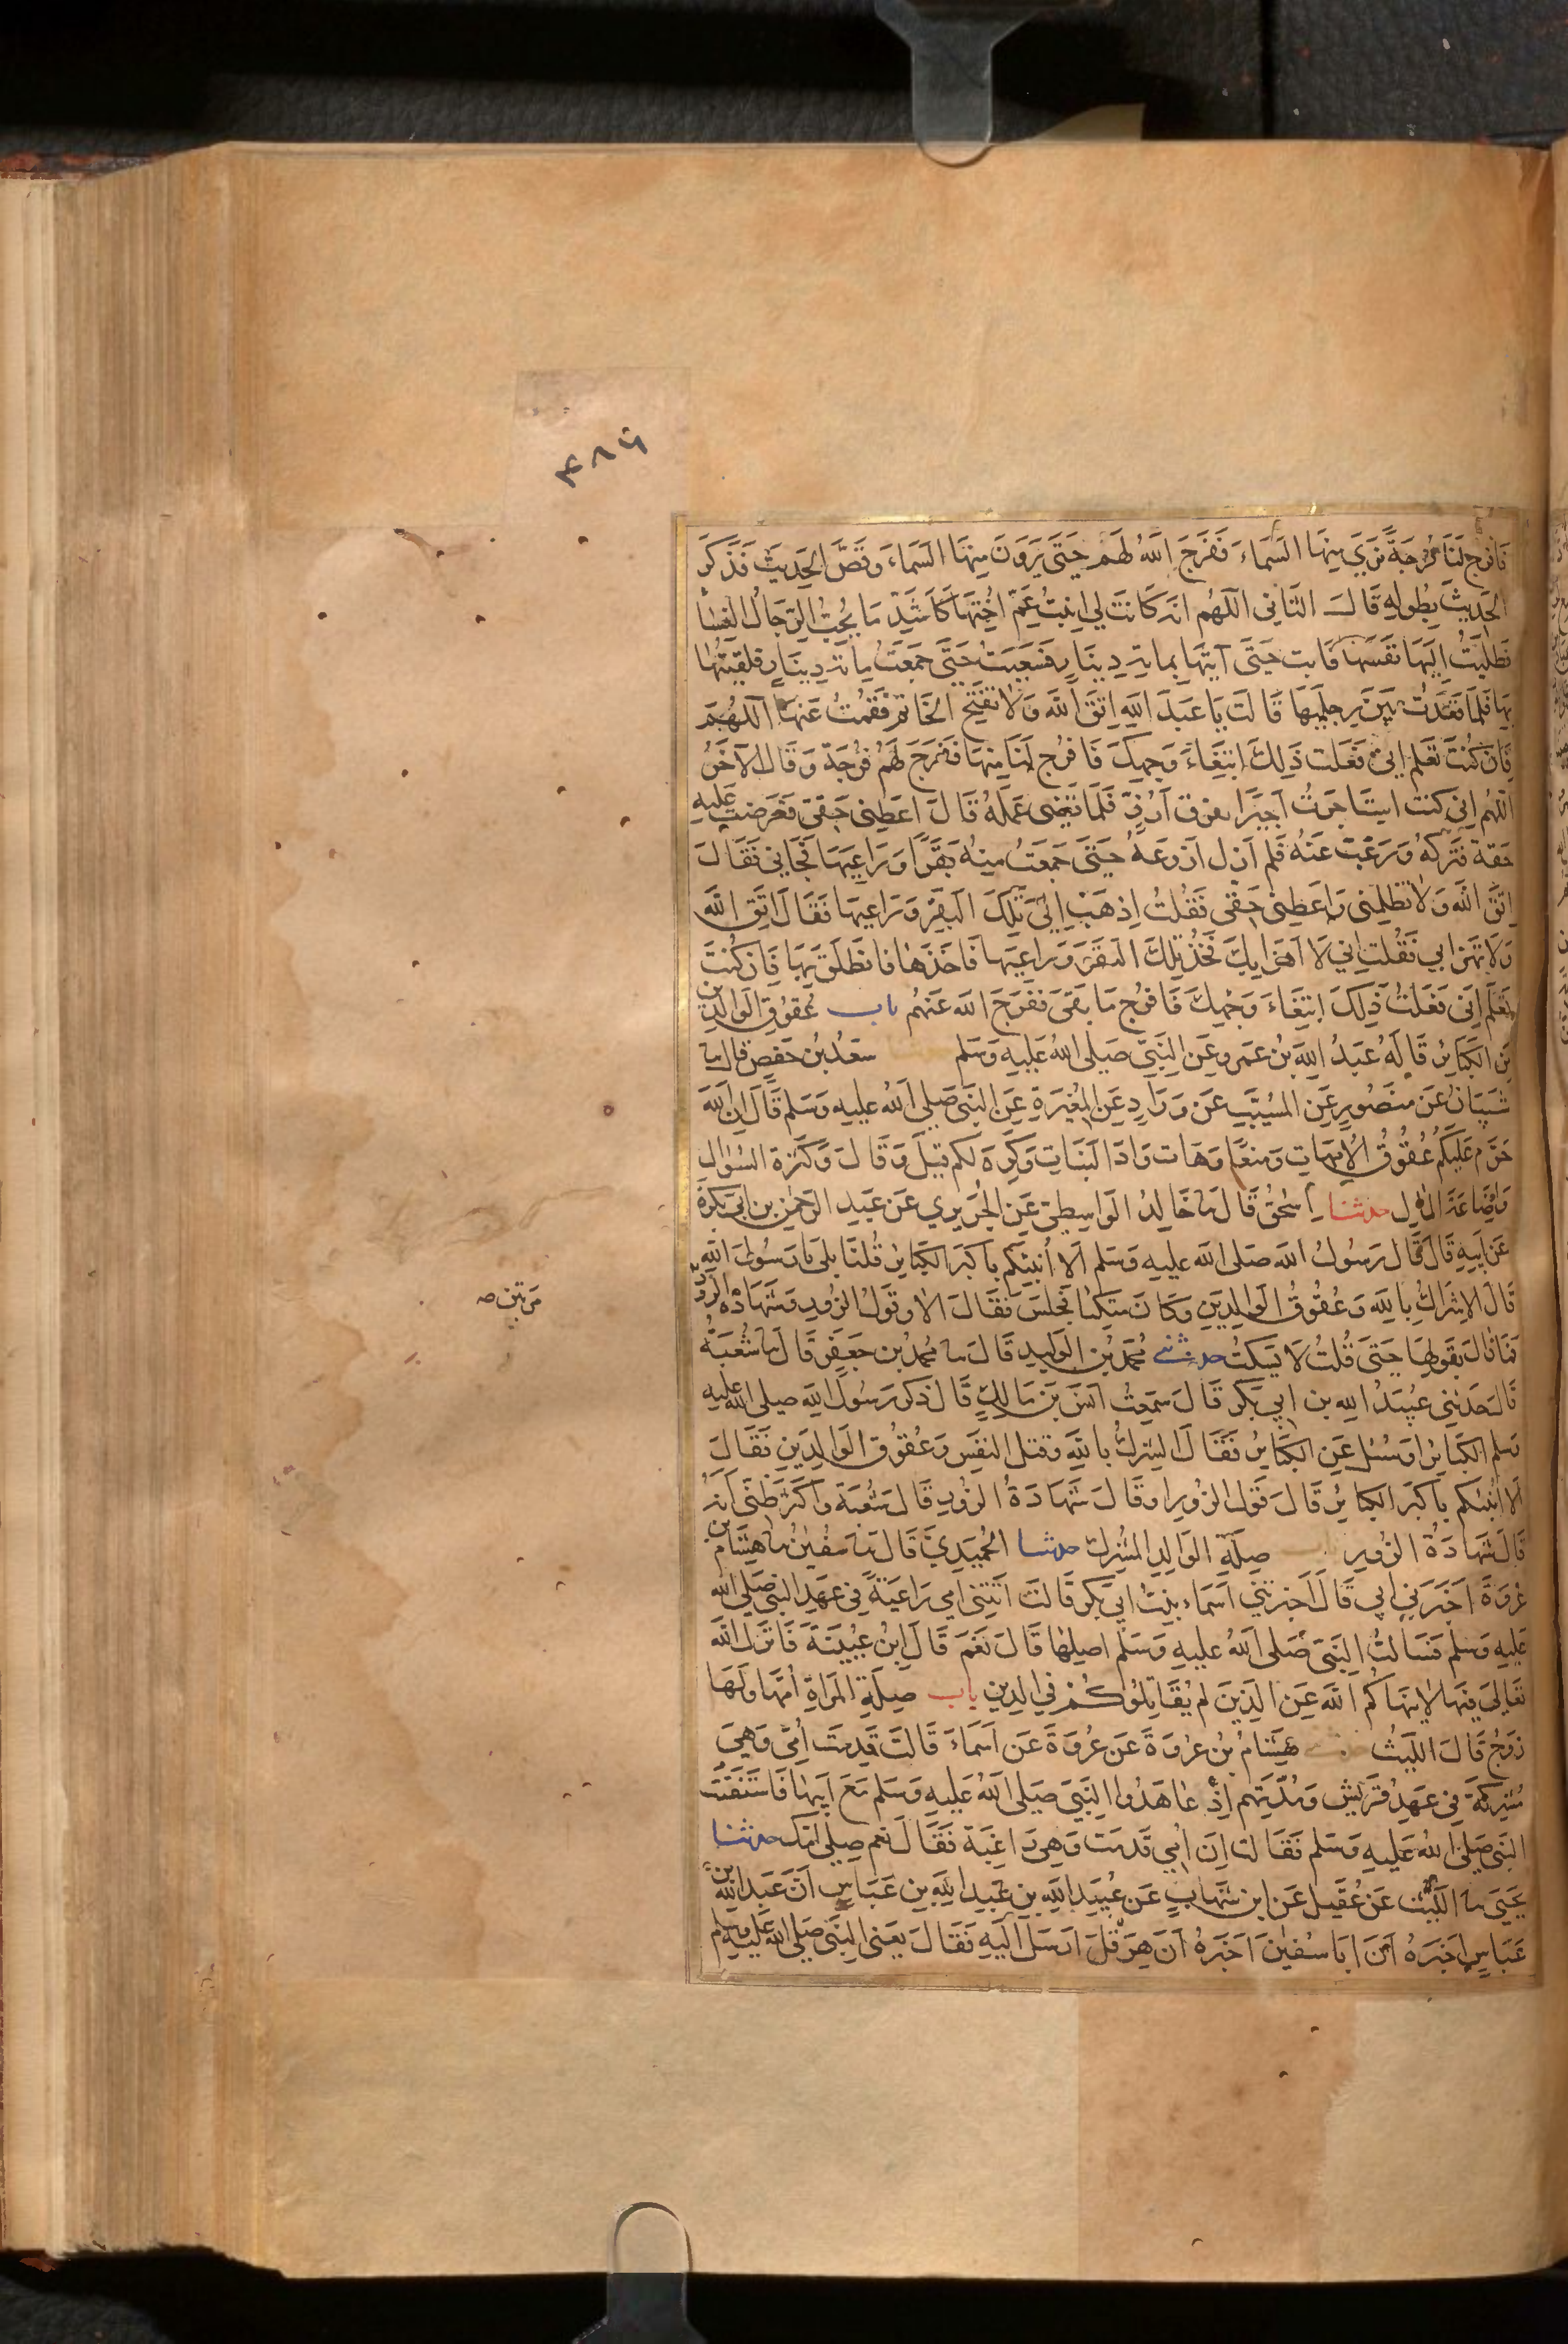 ٤٨٦
فَافرج لَنَا فُرجَةً نَرَي مِنهَا السَّمَاءَ فَفَرَجَ اللهُ لَهُم حَتَّى يَرَونَ مِنهَا السَّمَاءَ وَقَصَّ الحَدِيثَ فَذَكَرَ
الحَدِيثَ بِطُولِهِ قَالَ الثَّانِى اللهُم انه كَانَت لِي ابنَتُ عَمٍّ اُحِبُّهَا كَاَشَدِّ مَا يُحِبُّ الرِّجَالُ النِّسَاءَ
فَطَلَبتُ اِلَيهَا نَفسَهَا فَابت حَتَّى آتِيَهَا بماية دِينَارٍ فَسَعَيتُ حَتَّى جَمَعتُ مِاَةَ دِينَارٍ فلقيتُهَا
بِهَا فَلَمَّا قَعَدتُ بَينَ رِجلَيهَا قَالَت يَا عَبدَ اللهِ اِتَّقِ اللهَ وَلَا تَفتَحِ الخَاتَم فَقُمتُ عَنهَا اللهُمَّ
فَان كُنتَ تَعلَم اِنى قَد فَعَلت ذَلِكَ ابتِغَاءَ وَجهِكَ فَافرُج لَنَا مِنهَا فَفَرَجَ لَهُم فُرجَة وَقَالَ الآخَرُ
اللهُم اِنِّى كُنت استَاجَرتُ اَجِيرًا بفرق اَرُزٍّ فَلَمَّا قَضَى عَمَلَهُ قَالَ اَعطِنِى حَقِّى فَعَرَضت عَلَيهِ
حَقهُ فتَرَكَهُ وَرَغِبَ عَنهُ فَلَم اَزَل اَزرَعهُ حَتَّى جَمَعتُ مِنهُ بَقَرًا وَرَاعِيَهَا فَجَاءَنِى فَقَالَ
اتَّقِ اللهَ وَلَا تَظلِمنِى وَاَعطِنِى حَقِّى فَقُلتُ اِذهَب اِلَى تِلكَ البَقَرِ وَرَاعِيهَا فَقَالَ اتَّقِ اللهَ
وَلَا تَهزَأ بِي فَقُلت اِنِي لَا اَهزَأ بِكَ فَخُذ تِلكَ البَقَرَ وَرَاعِيَهَا فَاَخَذَهَا فَانطَلَقَ بِهَا فَاِن كُنتَ
تَعلَم اِنِّى فَعَلتُ ذَلِكَ ابتِغَاءَ وَجهِكَ فَافرُج مَا بَقِىَ فَفَرَجَ اللهُ عَنهُم باب عُقُوقِ الوَالِدَينِ
مِنَ الكَبَائِرِ قَالَهُ عَبدُ اللهِ بن عَمرو عَنِ النَّبِيِّ صَلَى اللهُ عَلَيهِ وَسَلم سَعدُ بنُ حَفص قال نا
شَيبَانُ عَن مَنصُورٍ عَنِ المُسَيَّبِ عَن وَرَّادٍ عَنِ المُغِيرَةِ عَنِ النَبِيّ صَلى اللهُ عليهِ وَسَلم قَالَ اِنَّ اللهَ
حَرَّمَ عَلَيكُم عُقُوقَ الاُمَّهَاتِ وَمَنعًا وَهَات وَوَادَ البَنَاتِ وَكَرِهَ لَكم قِيلَ وَقَالَ وَكَثرَةَ السُوَالِ
وَاِضَاعَةَ المَالِ حدثنا اِسحقُ قَالَ نَا خَالِدُ الوَاسِطِيّ عَنِ الجُرَيرِي عَن عَبدِ الرحمٰنِ بن اَبِى بَكرَةَ
عَن اَبِيهِ قَالَ قَالَ رَسُولُ اللهِ صَلى اللهُ عليهِ وَسَلم اَلَا اُنَبِّئُكُم بِاَكبَرِ الكَبَائِرِ قُلنَا بَلَى يَا رَسُولَ اللهِ
قَالَ الاِشرَاكُ بِاللهِ وَعُقُوقُ الوَالِدَينِ وَكَانَ متكئا فَجَلَسَ فَقَالَ الا وقَولُ الزُّورِ وَشَهَادَةُ الزُّورِ
مرتين صه
فَمَا زالَ يَقُولهَا حَتَّى قُلتُ لَا يَسكُت حدثنى مُحَمّدُ بنُ الوَلِيدِ قَالَ نا مُحَمّدُ بن جَعفَرٍ قَالَ نا شُعبَةُ
قَالَ حَدَّثَنِى عُبَيدُ اللهِ بن اَبِي بَكرٍ قَالَ سَمِعتُ اَنَسَ بنَ مَالِكٍ قَالَ ذَكَر رَسُولُ اللهِ صلى الله عَليهِ
وسَلم الكَبَائِرَ او سُئِلَ عَنِ الكَبَائِرِ فَقَالَ الشِّركُ بِاللهِ وَقَتلُ النَّفسِ وَعُقُوق الوَالِدَينِ فَقَالَ
اَلَا اُنَبِّئُكُم بِاَكبَرِ الكبائِرِ قَالَ قَولُ الزُورِ او قَالَ شَهَادَةُ الزُورِ قَالَ شُعبَة وَاَكثَرُ ظَنِّى اَنَّهُ
قَالَ شَهَادَةُ الزُورِ صِلَةِ الوَالِدِ المُشرِكِ حدثنا الحُمَيدِيُّ قَالَ نا سُفينُ نا هِشَامُ بن
عُروَةَ اَخبَرَنِى اَبِي قَالَ اَخبَرَتنِي اَسمَاءُ بِنتُ اَبِي بَكرٍ قَالَت اَتَتنِى امِى رَاغِبَةً فِى عَهدِ النبِى صَلى الله
عَلَيهِ وَسَلم فَسَاَلتُ النَبِىَّ صَلى اللهُ عليهِ وَسَلم اصِلُهَا قَالَ نَعَم قَالَ ابنُ عُيَينَةَ فَانزَلَ اللهُ
تَعَالَى فِيهَا لَا يَنهَاكُم اللهُ عَنِ الَّذِينَ لَم يُقَاتِلُوكُم فِي الدِينِ باب صِلَةِ المَرأَةِ اُمَّهَا وَلَهَا
زَوجٌ قَالَ اللَيثُ هِشَامُ بنُ عُروَةَ عَن عُروَةَ عَن اَسمَاءَ قَالَت قَدِمَت اُمِّى وَهِىَ
مُشرِكَةٌ فِى عَهدِ قُرَيشٍ وَمُدَّتِهِم اِذ عَاهَدُوا النَبِيَّ صَلى اللهُ عَلَيهِ وَسَلم مَعَ اَبِيهَا فَاستَفتَيتُ
النَبِيّ صَلى اللهُ عَلَيهِ وَسَلم فَقَالت اِنَّ اُمِي قَدمَت وَهِىَ رَاغِبَة فَقَالَ نَعَم صِلِى اُمَّكِ حدثنا
يَحيَى نا اللَيثُ عَن عُقَيلٍ عَنِ ابنِ شِهَابٍ عَن عُبَيدِ اللهِ بنِ عَبدِ اللهِ بنِ عَبَّاسٍ اَنَّ عَبدَ اللهِ بن
عَبَاسٍ اَخبَرَهُ اَنَّ اَبَا سُفينَ اَخبَرَهُ اَنَّ هِرَقلَ اَرسَلَ اِلَيهِ فَقَالَ يَعنِى النَّبِىَّ صَلى الله عَليهِ وسلم